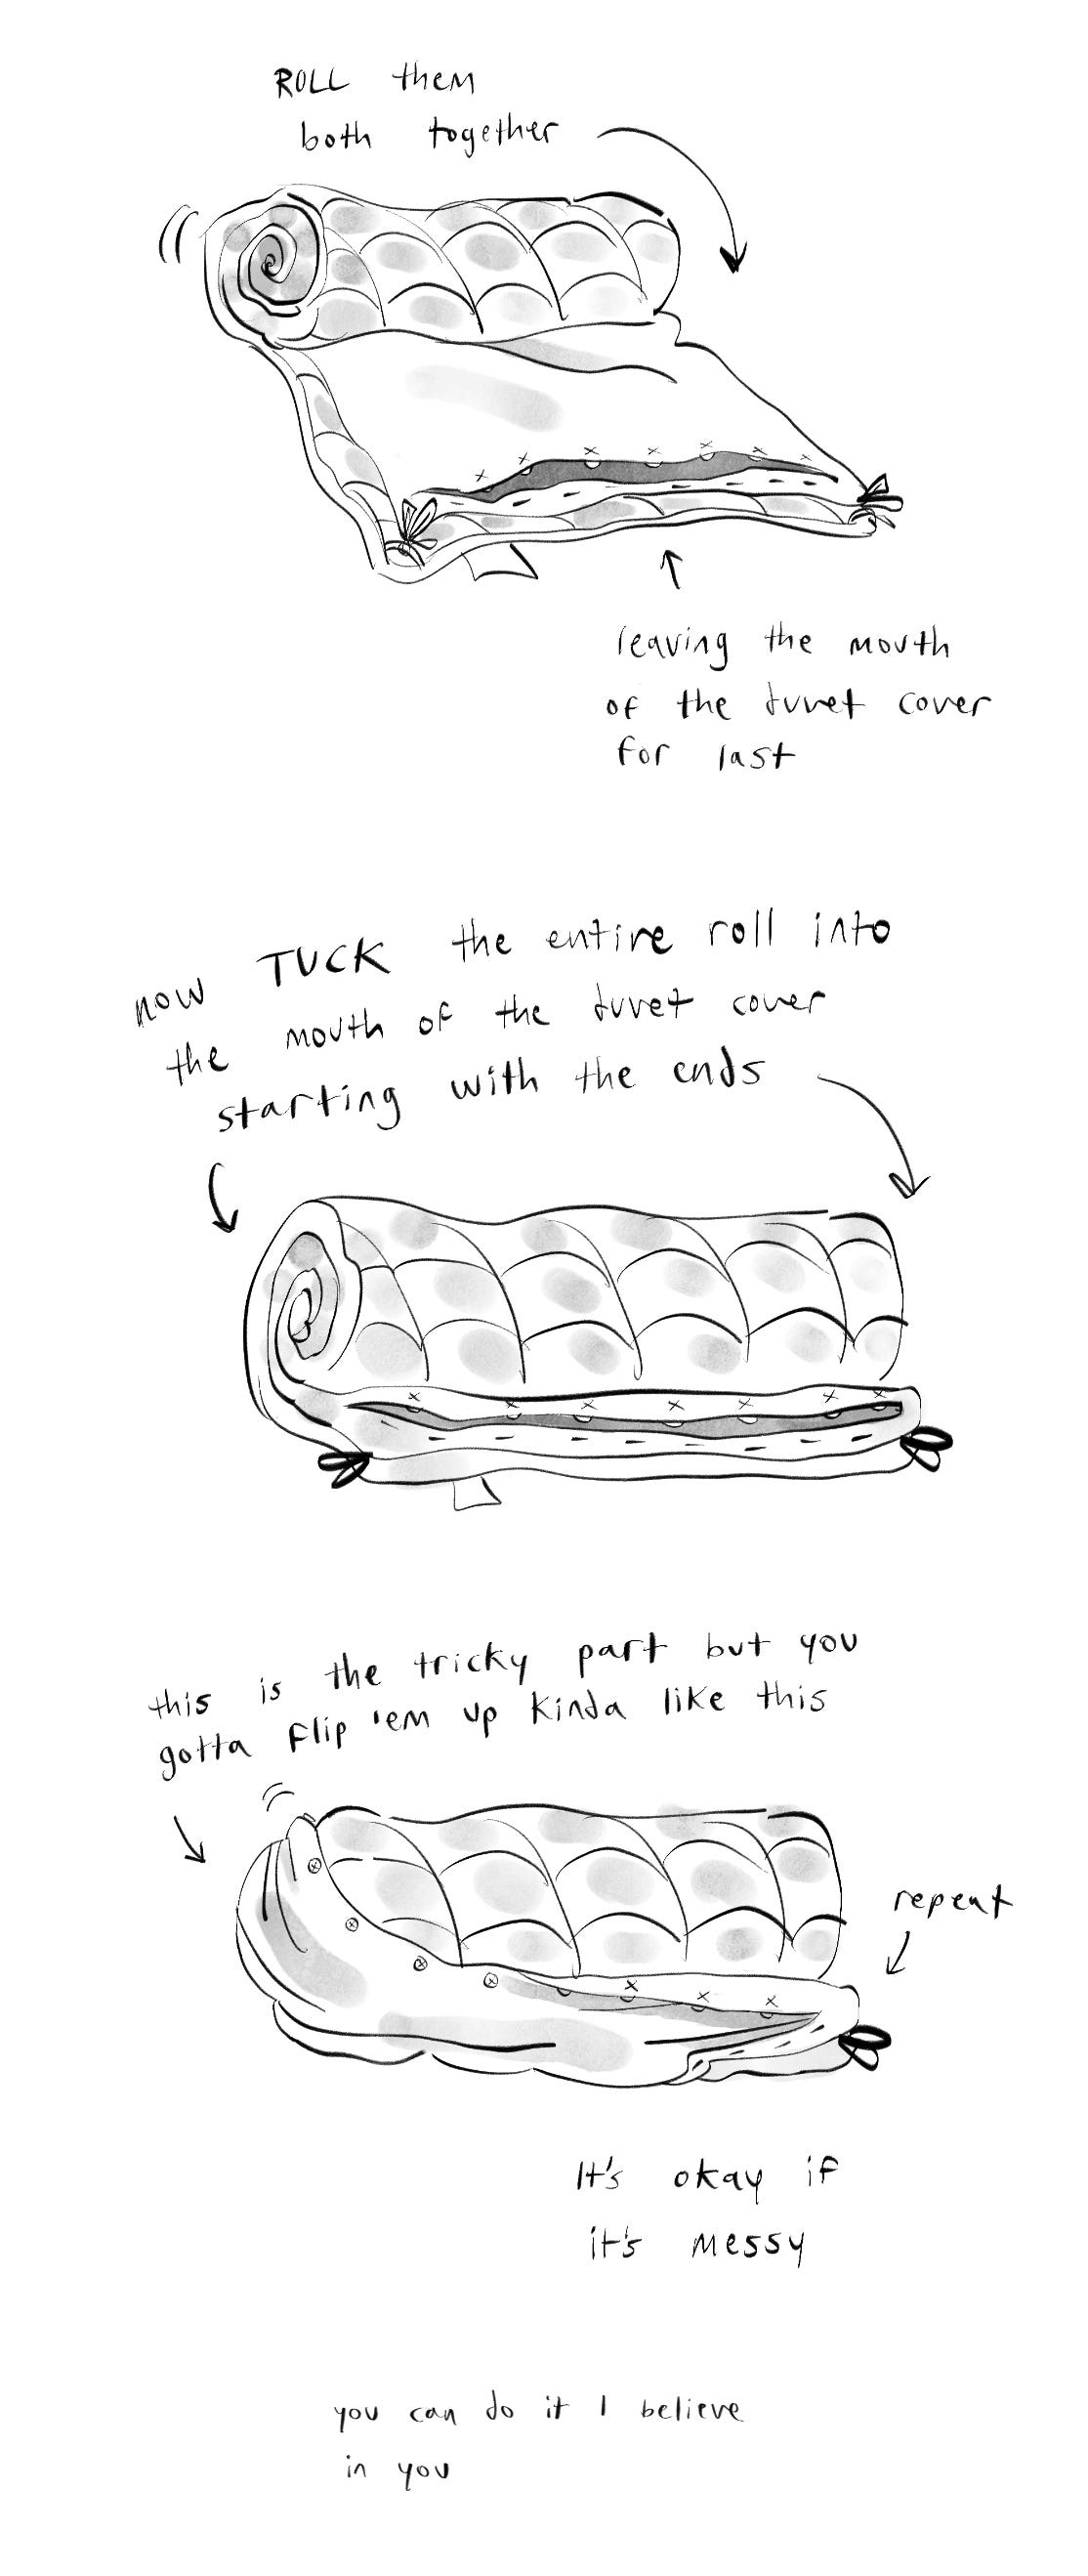 ROLL them
both together
leaving the mouth
of the duvet cover
for last
now TUCK the entire roll into
the mouth of the duvet cover
starting with the ends
this is the tricky part but you
gotta flip 'em up kinda like this
repeat
It's okay if
it's messy
you can do it I believe
in you